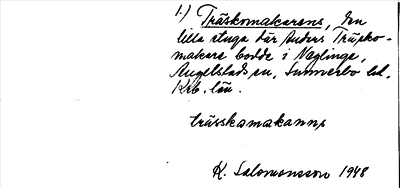 1.) Träskomakarens, Den
lilla stuga där Anders Träsko-
makare bodde i Näglinge,
Angelstads sn, Sunnerbo hd,
Krb. län.
trässkamakanns
K. Salomonsson 1948